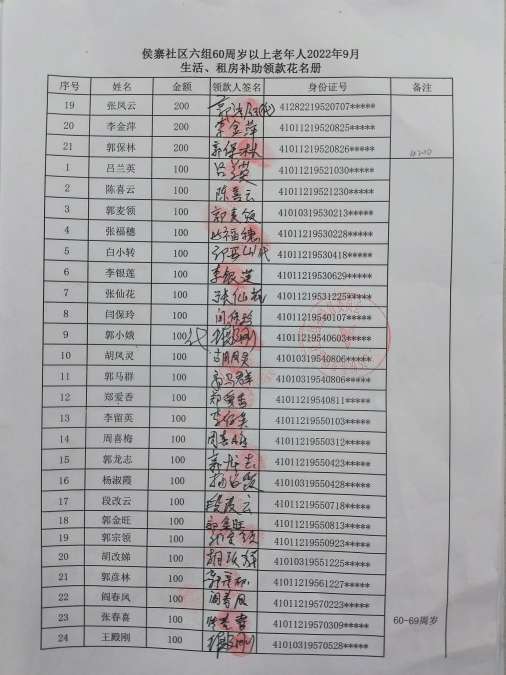 侯寨社区六组60周岁以上老年人2022年9月
生活、租房补助领款花名册
序号 姓名 金额 领款人签名 身份证号 备注
19 张凤云 200 41282219520707*****
20 李金萍 200 李金萍 41011219520825*****
21 郭保林 200 郭保林 41011219520826***** 4200
1 吕兰英 100 41011219521030*****
2 陈喜云 100 陈喜云 41011219521230*****
3 郭麦领 100 郭麦领 41010319530213*****
4 张福穗 100 张福穗 41011219530228*****
5 白小转 100 41011219530418*****
6 李银莲 100 李银莲 41011219530629*****
7 张仙花 100 张仙花 41011219531225*****
8 闫保玲 100 闫保玲 41011219540107*****
9 郭小娥 100 代 王殿刚 41011219540603*****
10 胡凤灵 100 胡凤灵 41010319540806*****
11 郭马群 100 郭马群 41010319540806*****
12 郑爱香 100 郑爱香 41011219540811*****
13 李留英 100 41011219550103*****
14 周喜梅 100 周喜梅 41011219550312*****
15 郭龙志 100 郭龙志 41011219550423*****
16 杨淑霞 100 41010319550428*****
17 段改云 100 段改云 41011219550718*****
18 郭金旺 100 郭金旺 41011219550813*****
19 郭宗领 100 41011219550923*****
20 胡改娣 100 胡改娣 41010319551225*****
21 郭彦林 100 41011219561227*****
22 阎春风 100 阎春风 41011219570223*****
23 张春喜 100 张春喜 41011219570309***** 60-69周岁
24 王殿刚 100 王殿刚 41010319570528*****